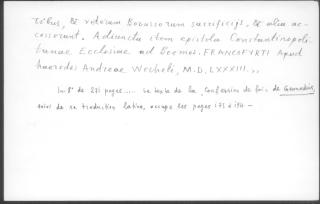 rebus, & veterum Borussorum sacrificijs, & alia ac-
cesserunt. Adiuncta item epistola Constantinopoli-
tanae Ecclesiae ad Boemos. FRANCOFVRTI Apud
haeredes Andreae Wecheli, M.D.LXXXIII.,,
In 8° de 271 pages.... Le texte de la Confession de foi de Gennadius,
suivi de sa traduction latine, occupe les pages 173 à 190 —